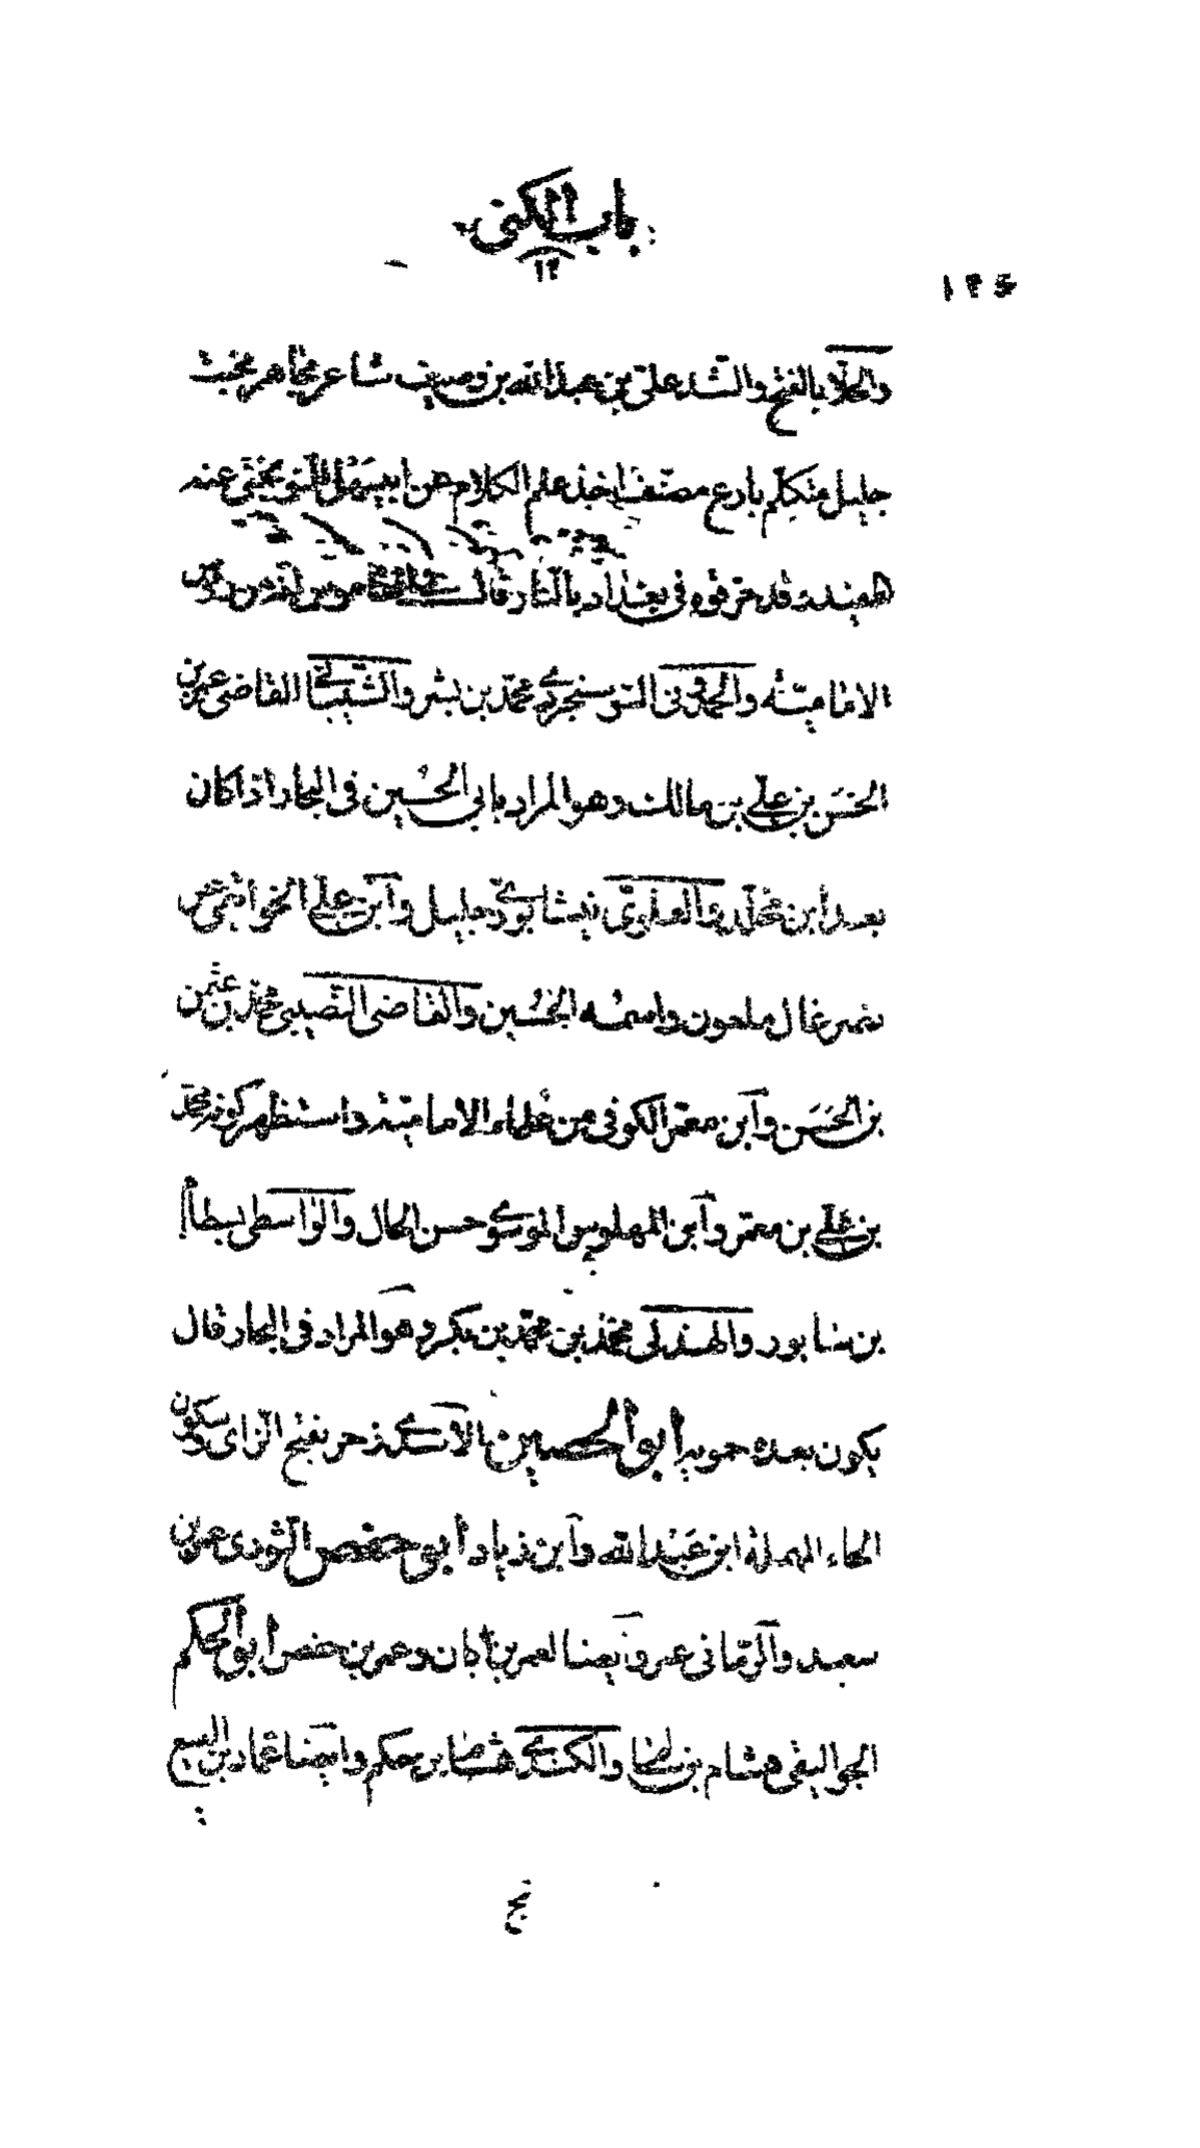 باب الكنى
١٢
١٢٤
والحلّا بالفتح والتشد على بن عبد الله بن وصيف شاعر مجاهر محب
جليل متكلّم بارع مصنّف اخذ علم الكلام عن ابي سهل النوبختى عنه
قد حرقوه فى بغداد بالنار قال
الاماميّة والحمدونى السوسنجردى محمّد بن بشر والشيبانى القاضى عمر بن
الحسن بن على بن مالك وهو المراد بابى الحسين فى البحار اذا كان
بعد ابن مخلد والعلوىّ نيشابورى جليل وآبن على الخواتيمى من
غال ملعون واسمه الحسين والقاضى النصيبى محمّد بن عثمن
بن الحسن وآبن معمّر الكوفى من علماء الاماميّة واستظهر كونه محمّد
بن على بن معمّر وآبن المهلوس الموسوى حسن الحال والواسطى بسطام
بن سابور والهذلى محمّد بن محمّد بن بكر وهو المراد فى البحار قال
يكون بعده حمويه ابو الحصين بالآسدى زحر بفتح الزاى وسكون
الحاء المهملة ابن عبد الله وآبن زياد ابو حفص الثورى عمر بن
سعيد والرمّانى عمر وآيضا لعمر بن ابان وعمر بن حفص ابو الحكم
الجواليقى هشام بن سالم والكندى هشام بن حكم وايضا عمّار بن اليسع